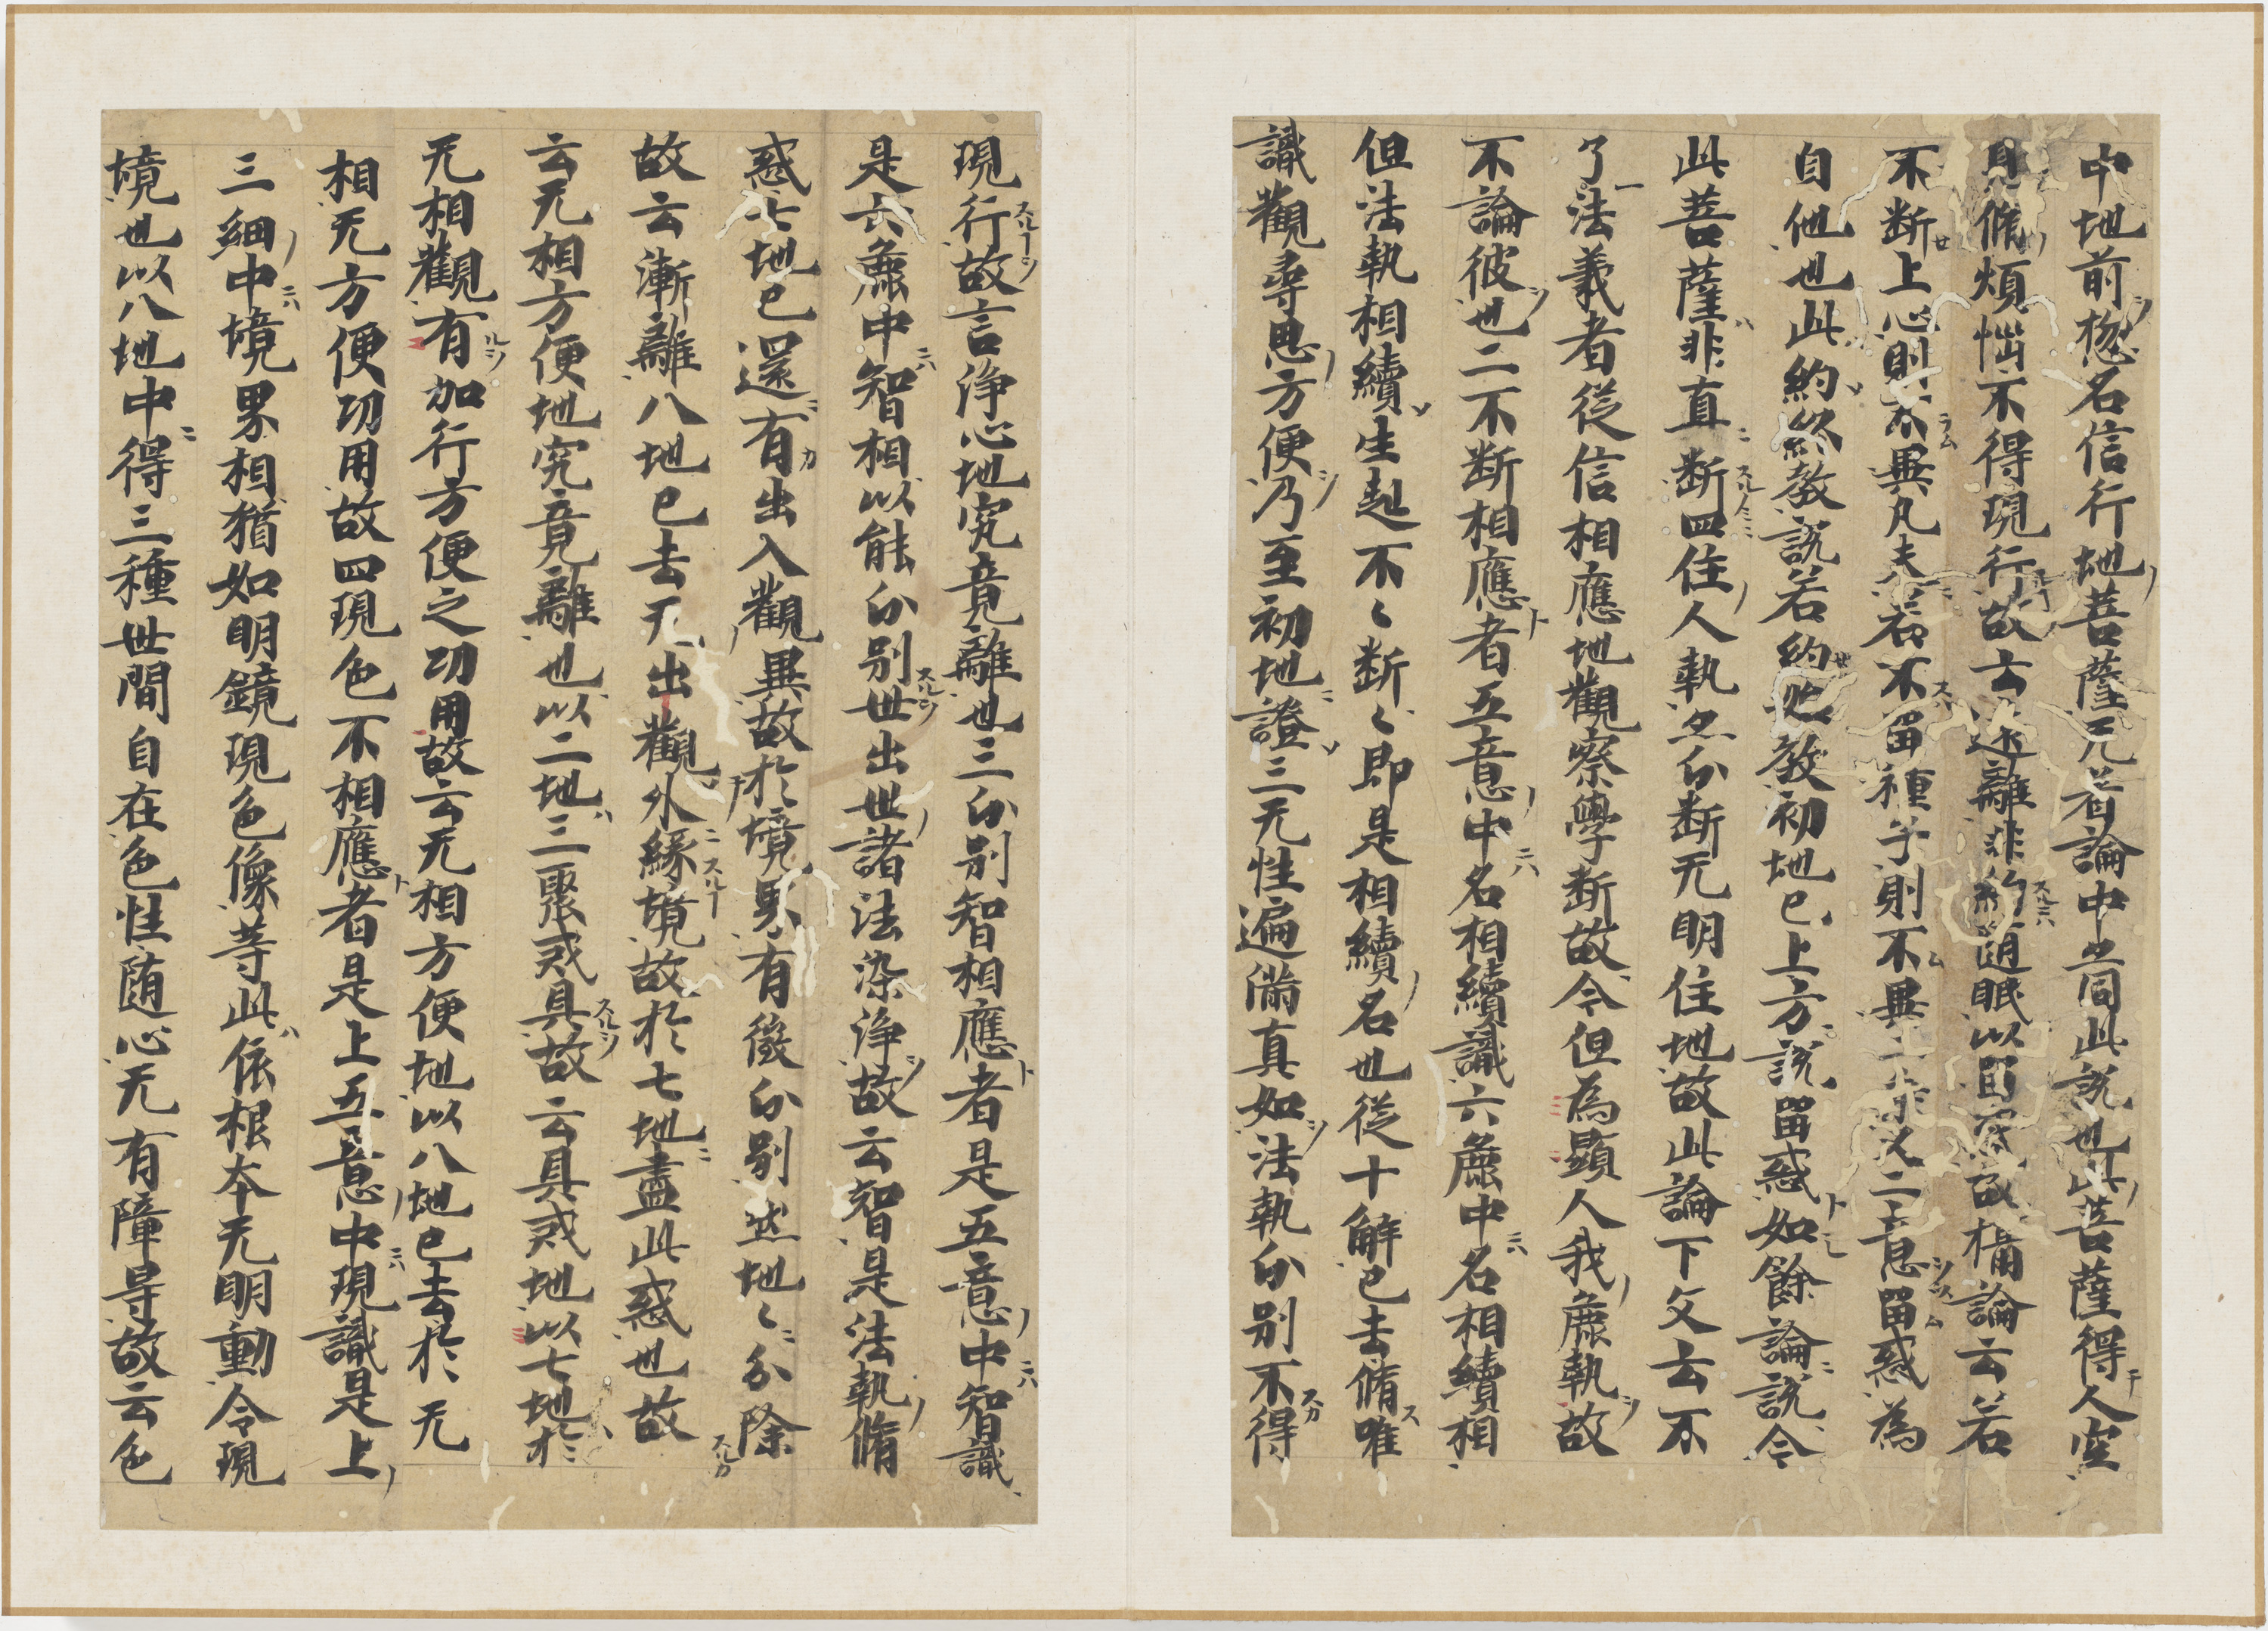 中地前惣名信行地菩薩元者論中並同此説也此菩薩得人空
見脩煩惱不得現行故云遠離非約隨眠以留故攝論云若
不断上心則不異凡夫若不留種子則不異二乘又二意留惑為
自他也此約終教説若約始教初地已上方説留惑如餘論説令
此菩薩非直断四住人執亦分断无明住地故此論下文云不
了一法義者從信相應地觀察學断故令但為顯人我麁執故
不論彼也二不断相應者五意中名相續識六麁中名相續相
但法執相續生起不〻断〻即是相續名也從十解已去脩唯
識觀尋思方便乃至初地證三无性遍満真如法執分別不得
現行故言浄心地究竟離也三分別智相應者是五意中智識
是六麁中智相以能分別世出世諸法染浄故云智是法執脩
惑七地已還有出入觀異故於境界有微分別然地〻分除
故云漸離八地已去无出觀外緣境故於七地盡此惑也故
云无相方便地究竟離也以二地三聚戒具故云具戒地以七地於
无相觀有加行方便之功用故云无相方便地以八地已去於无
相无方便功用故四現色不相應者是上五意中現識是上
三細中境界相猶如明鏡現色像等此依根本无明動令現
境也以八地中得三種世間自在色性随心无有障㝵故云色